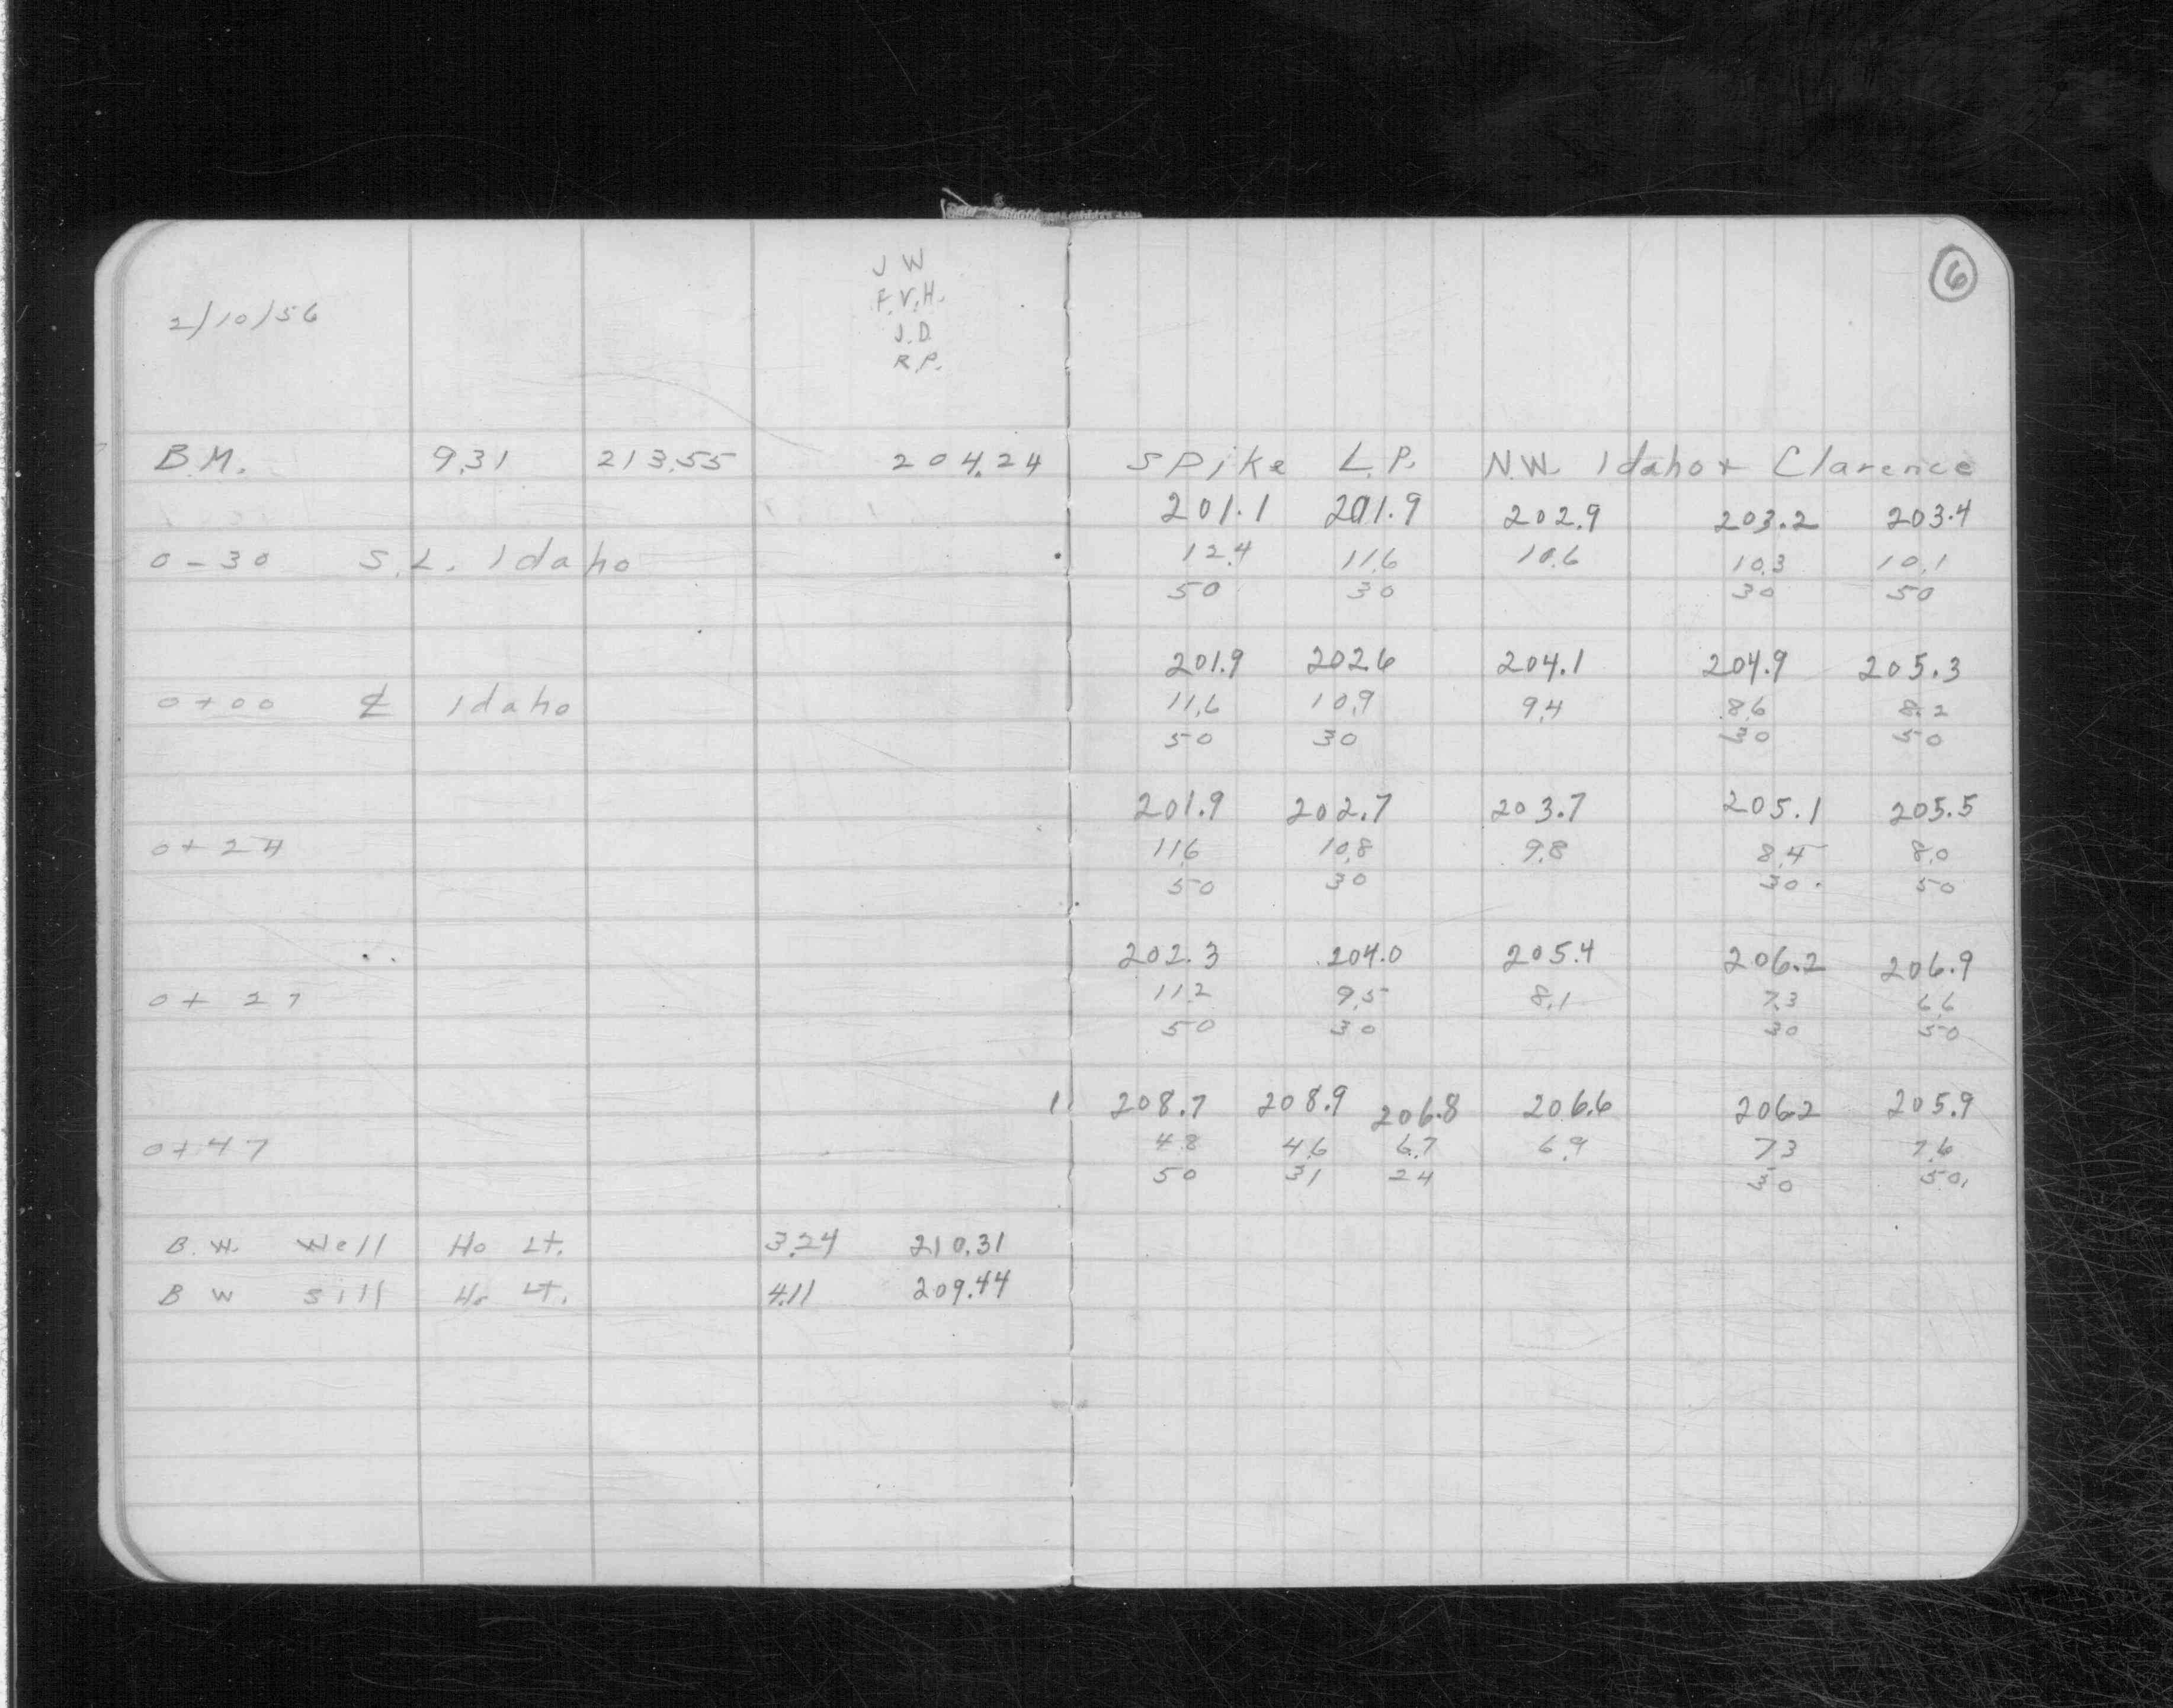 6
J W
F.V.H.
2/10/56
J.D.
R.P.
B.M. 9.31 213.55 204.24 Spike L.P. N.W. Idaho + Clarence
201.1 201.9 202.9 203.2 203.4
0-30 S.L. Idaho 12.4 11.6 10.6 10.3 10.1
50 30 30 50
201.9 202.6 204.1 204.9 205.3
0+00 ℄ Idaho 11.6 10.9 9.4 8.6 8.2
50 30 30 50
201.9 202.7 203.7 205.1 205.5
0+24 11.6 10.8 9.8 8.4 8.0
50 30 30 50
202.3 204.0 205.4 206.2 206.9
0+27 11.2 9.5 8.1 7.3 6.6
50 30 30 50
208.7 208.9 206.8 206.6 206.2 205.9
0+47 4.8 4.6 6.7 6.9 7.3 7.6
50 31 24 30 50
B.W. Well Ho Lt. 3.24 210.31
B W sill Ho Lt. 4.11 209.44